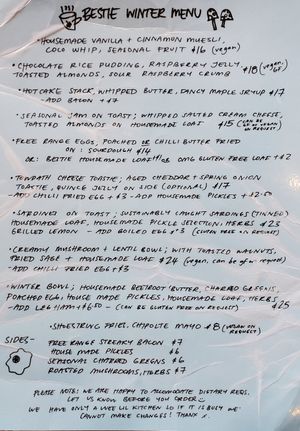 BESTIE WINTER MENU
• HOUSEMADE VANILLA + CINNAMON MUESLI,
COCO WHIP, SEASONAL FRUIT $16 (vegan)
• CHOCOLATE RICE PUDDING, RASPBERRY JELLY,
TOASTED ALMONDS, SOUR RASPBERRY CRUMB $18 (vegan/
GF)
• HOTCAKE STACK, WHIPPED BUTTER, DANCY MAPLE SYRUP $17
- ADD BACON +$7
• SEASONAL JAM ON TOAST; WHIPPED SALTED CREAM CHEESE,
TOASTED ALMONDS ON HOUSEMADE LOAF $15 (CAN BE
GF OR VEGAN
ON REQUEST)
• FREE RANGE EGGS, POACHED OR CHILLI BUTTER FRIED
ON: SOURDOUGH $14
OR: BESTIE HOUSEMADE LOAF OR OMG GLUTEN FREE LOAF +$2
• TOWPATH CHEESE TOASTIE; AGED CHEDDAR + SPRING ONION
TOASTIE, QUINCE JELLY ON SIDE (OPTIONAL) $17
- ADD CHILLI FRIED EGG +$3 - ADD HOUSEMADE PICKLES +$2.50
• SARDINES ON TOAST; SUSTAINABLY CAUGHT SARDINES (TINNED)
HOUSEMADE LOAF, HOUSEMADE PICKLE SELECTION, HERBS $23
GRILLED LEMON - ADD BOILED EGG $3 (GLUTEN FREE ON REQUEST)
• CREAMY MUSHROOM + LENTIL BOWL; WITH TOASTED WALNUTS,
FRIED SAGE + HOUSEMADE LOAF $24 (vegan. can be GF on request)
- ADD CHILLI FRIED EGG +$3
• WINTER BOWL; HOUSEMADE BEETROOT BUTTER, CHARRED GREENS,
POACHED EGG, HOUSE MADE PICKLES, HOUSEMADE LOAF, HERBS
ADD LEG HAM +$6.50 - (CAN BE GLUTEN FREE ON REQUEST) $25
• SHOESTRING FRIES, CHIPOTLE MAYO $8 (VEGAN ON
REQUEST)
SIDES-
FREE RANGE STREAKY BACON $7
HOUSE MADE PICKLES $6
SEASONAL CHARRED GREENS $6
ROASTED MUSHROOMS, HERBS $7
PLEASE NOTE: WE ARE HAPPY TO ACCOMODATE DIETARY REQS.
LET US KNOW BEFORE YOU ORDER
WE HAVE ONLY A WEE LIL KITCHEN SO IF IT IS BUSY WE
CANNOT MAKE CHANGES! THANK X